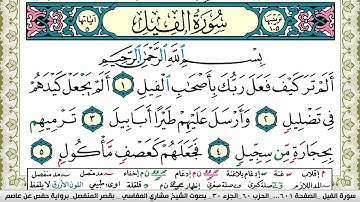 سُورَةُ الْفِيلِ
بِسْمِ اللَّهِ الرَّحْمَٰنِ الرَّحِيمِ
أَلَمْ تَرَ كَيْفَ فَعَلَ رَبُّكَ بِأَصْحَٰبِ الْفِيلِ ١ أَلَمْ يَجْعَلْ كَيْدَهُمْ
فِي تَضْلِيلٍ ٢ وَأَرْسَلَ عَلَيْهِمْ طَيْرًا أَبَابِيلَ ٣ تَرْمِيهِم
بِحِجَارَةٍ مِّن سِجِّيلٍ ٤ فَجَعَلَهُمْ كَعَصْفٍ مَّأْكُولٍ ٥
سورة الفيل، الصفحة ٦٠١، الجزء ٣٠، الحزب ٦٠، بصوت الشيخ مشاري العفاسي، بقصر المنفصل، برواية حفص عن عاصم